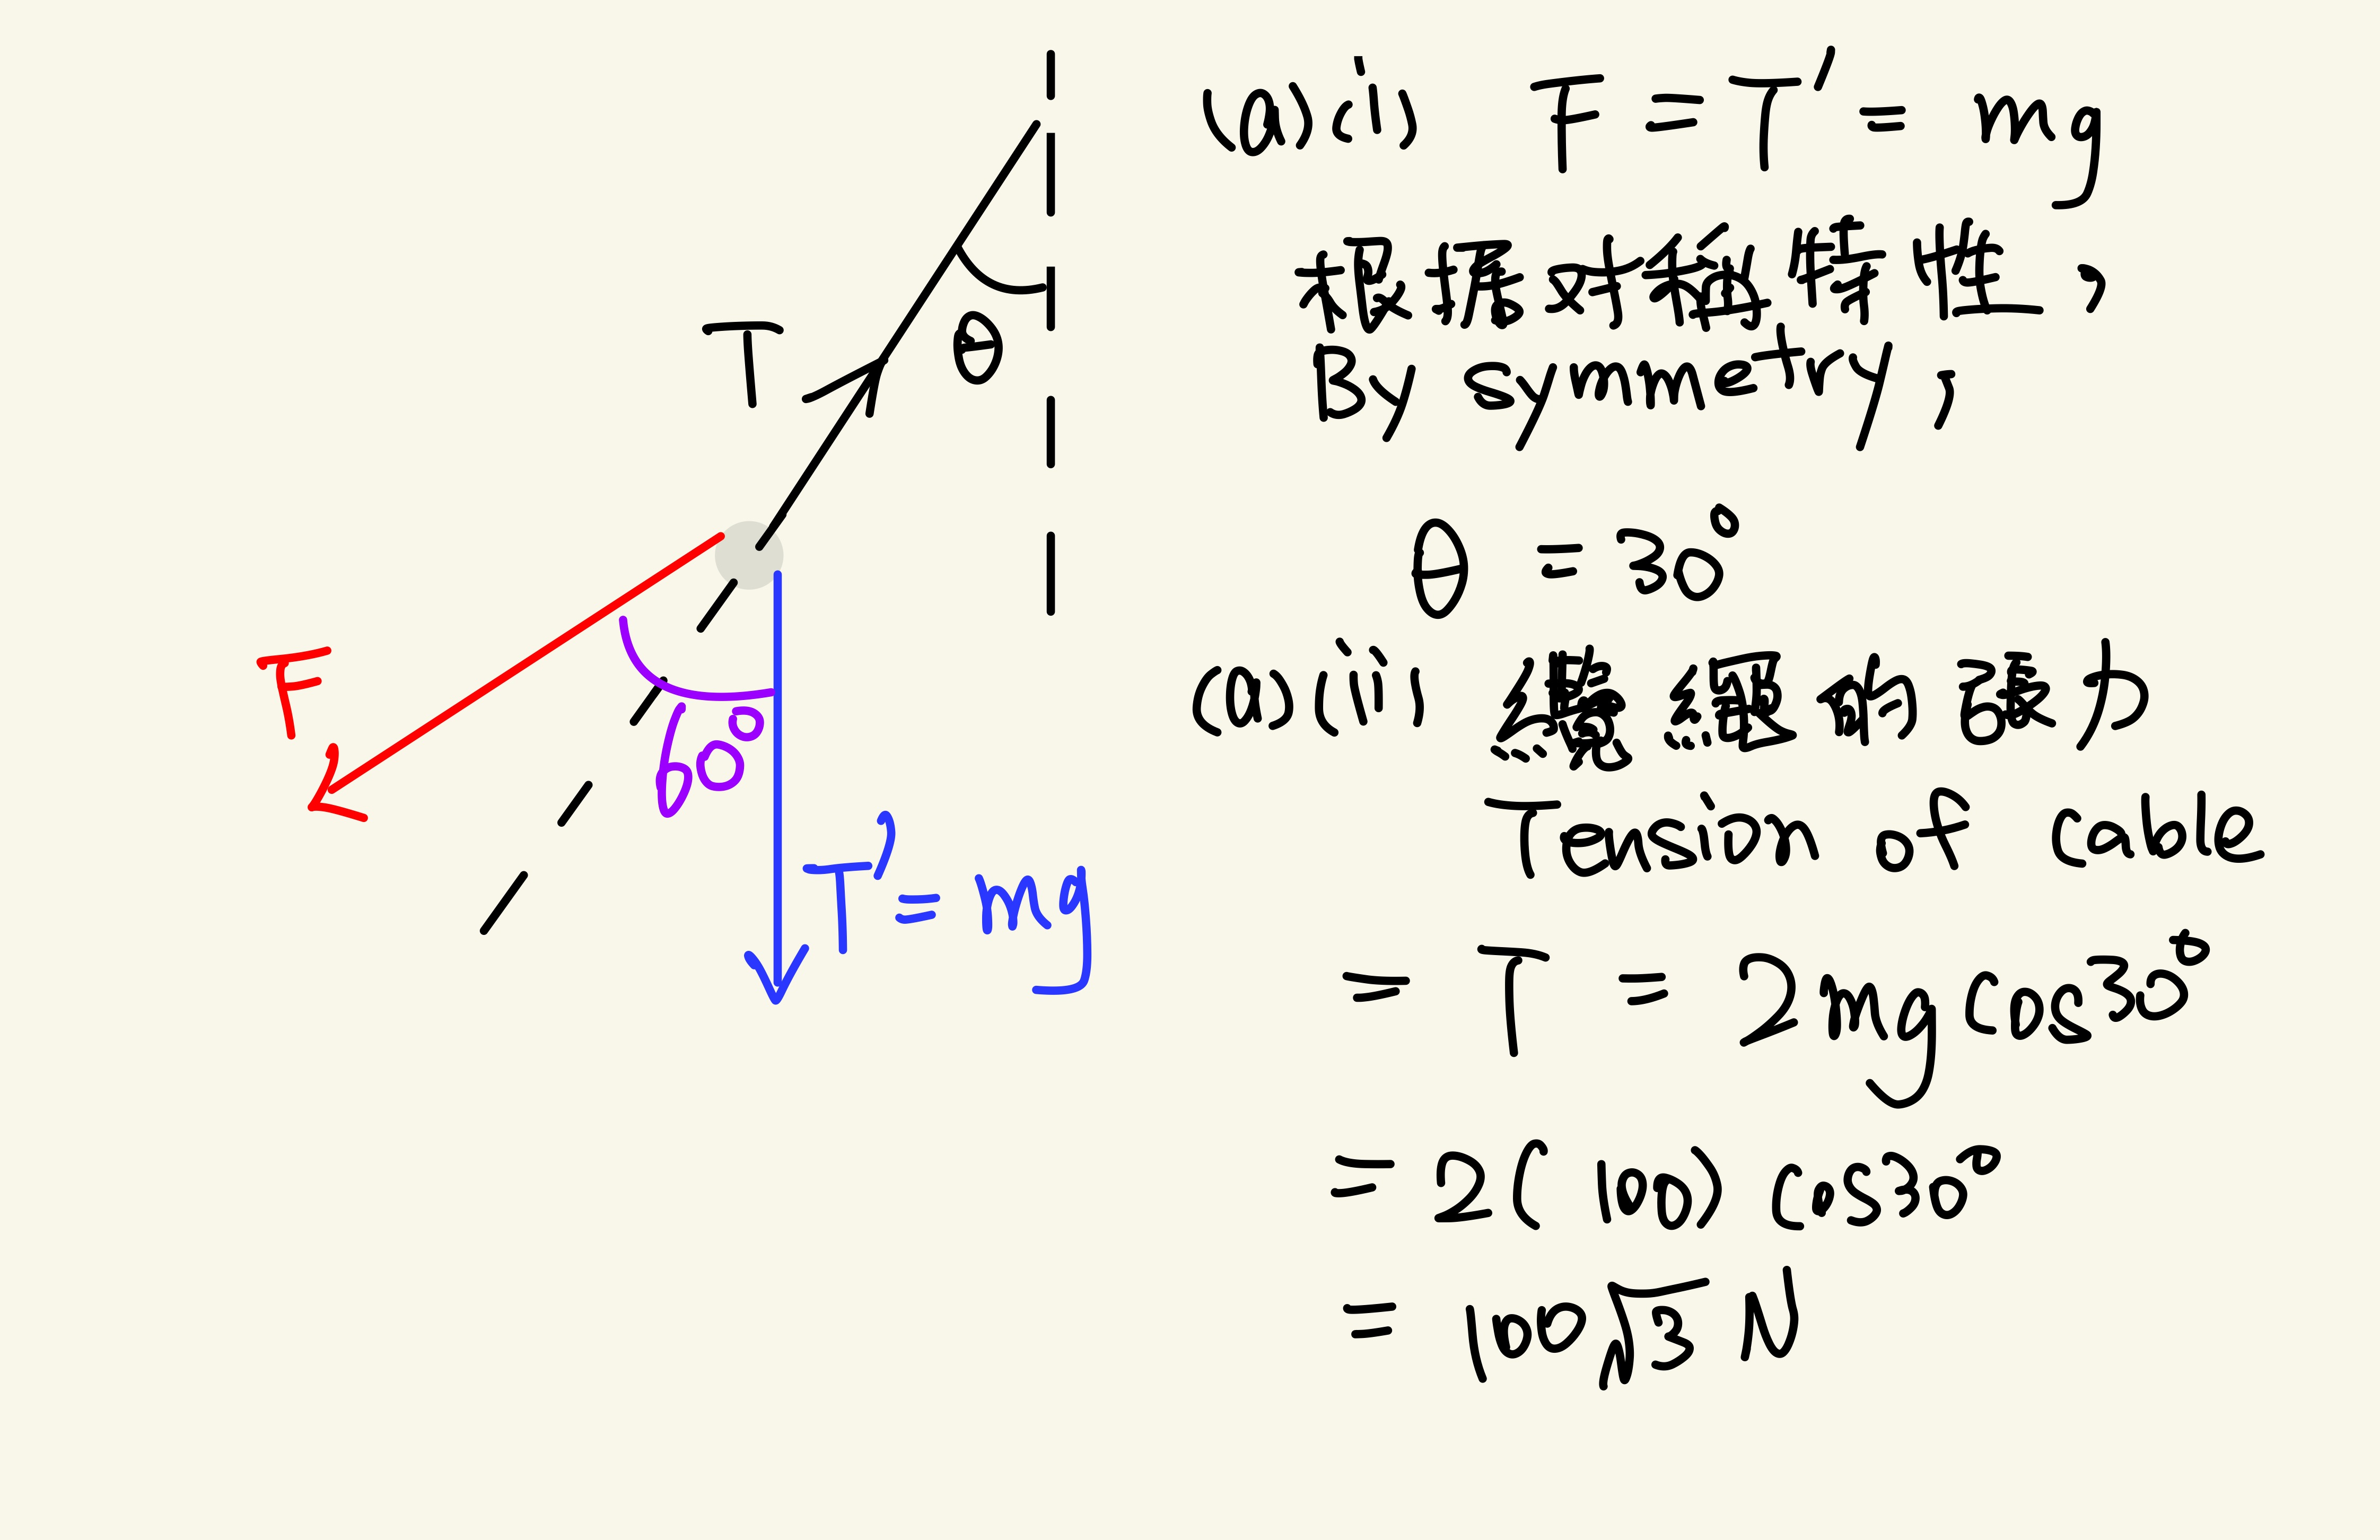 T
θ
F
60°
T' = mg
(a)(i) F = T' = mg
根據對稱特性，
By symmetry,
θ = 30°
(a)(ii) 纜繩的張力
Tension of cable
= T = 2mg cos30°
= 2(100) cos30°
= 100√3 N